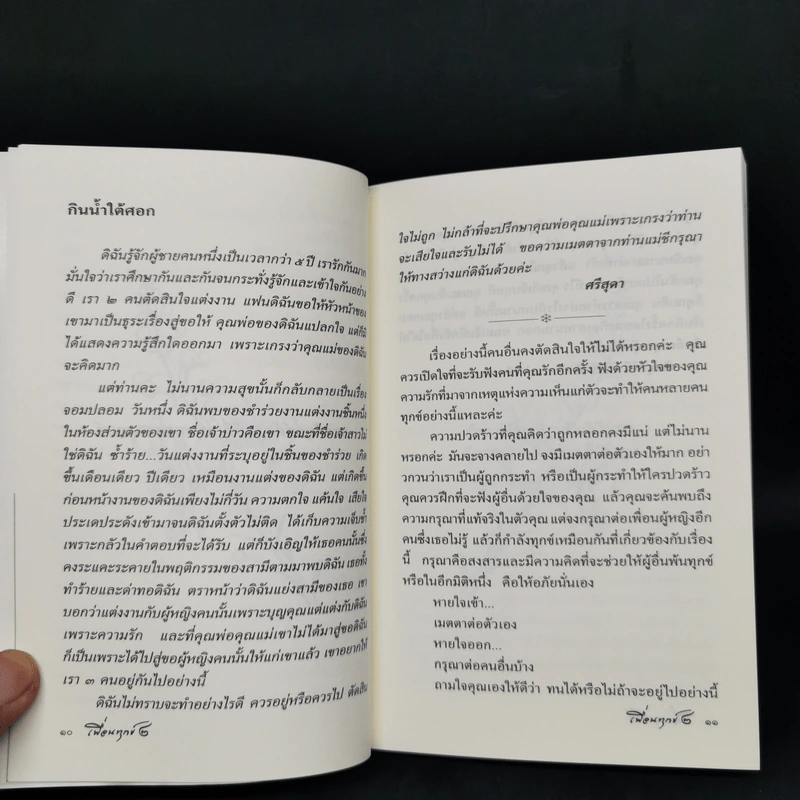 กินน้ำใต้ศอก
ดิฉันรู้จักผู้ชายคนหนึ่งเป็นเวลากว่า ๕ ปี เรารักกันมาก
มั่นใจว่าเราศึกษากันและกันจนกระทั่งรู้จักและเข้าใจกันอย่าง
ดี เรา ๒ คนตัดสินใจแต่งงาน แฟนดิฉันขอให้หัวหน้าของ
เขามาเป็นธุระเรื่องสู่ขอให้ คุณพ่อของดิฉันแปลกใจ แต่ก็มิ
ได้แสดงความรู้สึกใดออกมา เพราะเกรงว่าคุณแม่ของดิฉัน
จะคิดมาก
แต่ท่านคะ ไม่นานความสุขนั้นก็กลับกลายเป็นเรื่อง
จอมปลอม วันหนึ่ง ดิฉันพบของชำร่วยงานแต่งงานชิ้นหนึ่ง
ในห้องส่วนตัวของเขา ชื่อเจ้าบ่าวคือเขา ขณะที่ชื่อเจ้าสาวไม่
ใช่ดิฉัน ซ้ำร้าย...วันแต่งงานที่ระบุอยู่ในชิ้นของชำร่วย เกิด
ขึ้นเดือนเดียว ปีเดียว เหมือนงานแต่งของดิฉัน แต่เกิดขึ้น
ก่อนหน้างานของดิฉันเพียงไม่กี่วัน ความตกใจ แค้นใจ เสียใจ
ประเดประดังเข้ามาจนดิฉันตั้งตัวไม่ติด ได้เก็บความเจ็บช้ำ
เพราะกลัวในคำตอบที่จะได้รับ แต่ก็บังเอิญให้เธอคนนั้นซึ่ง
คงระแคะระคายในพฤติกรรมของสามีตามมาพบดิฉัน เธอทั้ง
ทำร้ายและด่าทอดิฉัน ตราหน้าว่าดิฉันแย่งสามีของเธอ เขา
บอกว่าแต่งงานกับผู้หญิงคนนั้นเพราะบุญคุณแต่แต่งกับดิฉัน
เพราะความรัก และที่คุณพ่อคุณแม่เขาไม่ได้มาสู่ขอดิฉัน
ก็เป็นเพราะได้ไปสู่ขอผู้หญิงคนนั้นให้แก่เขาแล้ว เขาอยากให้
เรา ๓ คนอยู่กันไปอย่างนี้
ดิฉันไม่ทราบจะทำอย่างไรดี ควรอยู่หรือควรไป ตัดสิน
๑๐ เพื่อนทุกข์ ๒
ใจไม่ถูก ไม่กล้าที่จะปรึกษาคุณพ่อคุณแม่เพราะเกรงว่าท่าน
จะเสียใจและรับไม่ได้ ขอความเมตตาจากท่านแม่ชีกรุณา
ให้ทางสว่างแก่ดิฉันด้วยค่ะ
ศรีสุดา
เรื่องอย่างนี้คนอื่นคงตัดสินใจให้ไม่ได้หรอกค่ะ คุณ
ควรเปิดใจที่จะรับฟังคนที่คุณรักอีกครั้ง ฟังด้วยหัวใจของคุณ
ความรักที่มาจากเหตุแห่งความเห็นแก่ตัวจะทำให้คนหลายคน
ทุกข์อย่างนี้แหละค่ะ
ความปวดร้าวที่คุณคิดว่าถูกหลอกคงมีแน่ แต่ไม่นาน
หรอกค่ะ มันจะจางคลายไป จงมีเมตตาต่อตัวเองให้มาก อย่า
กวนว่าเราเป็นผู้ถูกกระทำ หรือเป็นผู้กระทำให้ใครปวดร้าว
คุณควรฝึกที่จะฟังผู้อื่นด้วยใจของคุณ แล้วคุณจะค้นพบถึง
ความกรุณาที่แท้จริงในตัวคุณ แต่จงกรุณาต่อเพื่อนผู้หญิงอีก
คนซึ่งเธอไม่รู้ แล้วก็กำลังทุกข์เหมือนกันที่เกี่ยวข้องกับเรื่อง
นี้ กรุณาคือสงสารและมีความคิดที่จะช่วยให้ผู้อื่นพ้นทุกข์
หรือในอีกมิติหนึ่ง คือให้อภัยนั่นเอง
หายใจเข้า...
เมตตาต่อตัวเอง
หายใจออก...
กรุณาต่อคนอื่นบ้าง
ถามใจคุณเองให้ดีว่า ทนได้หรือไม่ถ้าจะอยู่ไปอย่างนี้
เพื่อนทุกข์ ๒ ๑๑